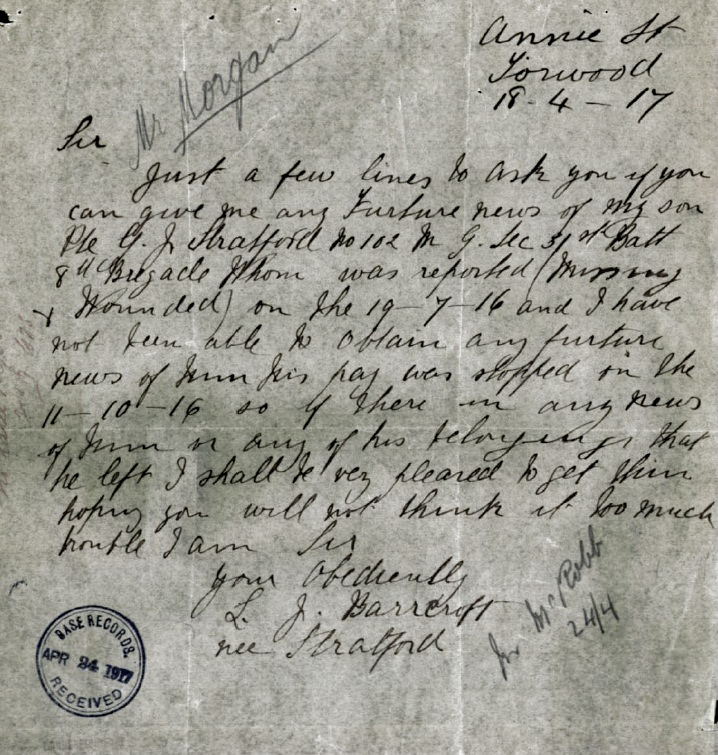 Annie St
Torwood
18-4-17
Mr Morgan
Sir
Just a few lines to ask you if you
can give me any Furture news of my son
Pte G. J. Stratford No 102 M G. Sec 31st Batt
8th Brigade Whom was reported (Missing
& Wounded) on the 19-7-16 and I have
not been able to obtain any furture
news of him his pay was stopped on the
11-10-16 so if there is any news
of him or any of his belongings that
he left I shall be very pleased to get them
hoping you will not think it too much
trouble I am Sir
your Obediently
L. J. Barrcroft
nee Stratford
Mr McRobb
24/4
BASE RECORDS.
APR 24 1917
RECEIVED